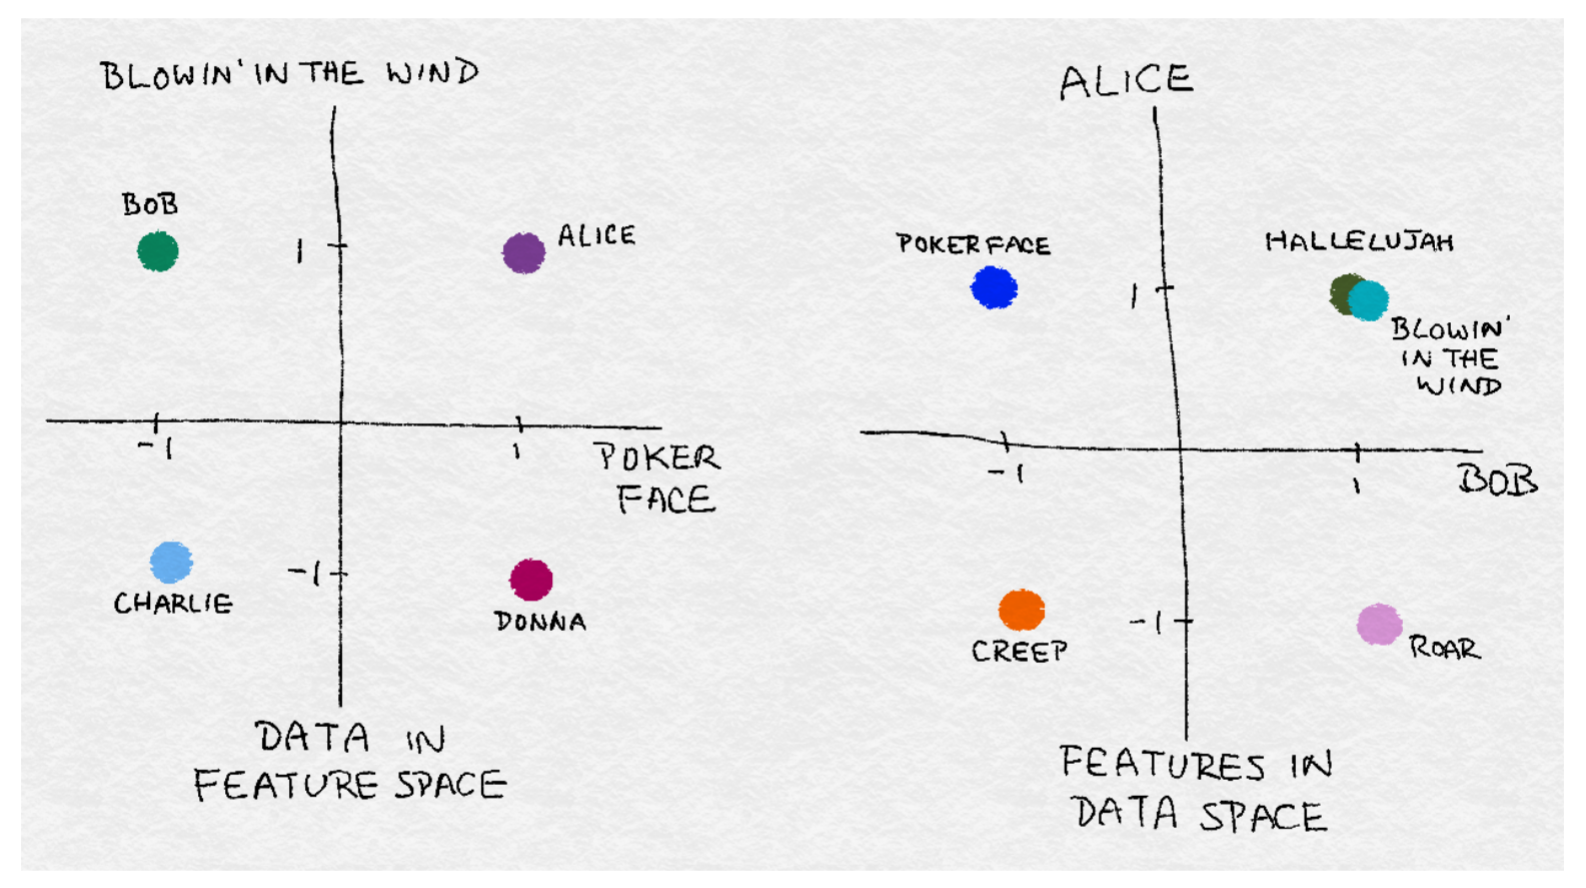 BLOWIN' IN THE WIND
BOB
1
ALICE
-1
1
POKER
FACE
-1
CHARLIE
DONNA
DATA IN
FEATURE SPACE
ALICE
POKER FACE
HALLELUJAH
1
BLOWIN'
IN THE
WIND
-1
1
BOB
-1
CREEP
ROAR
FEATURES IN
DATA SPACE